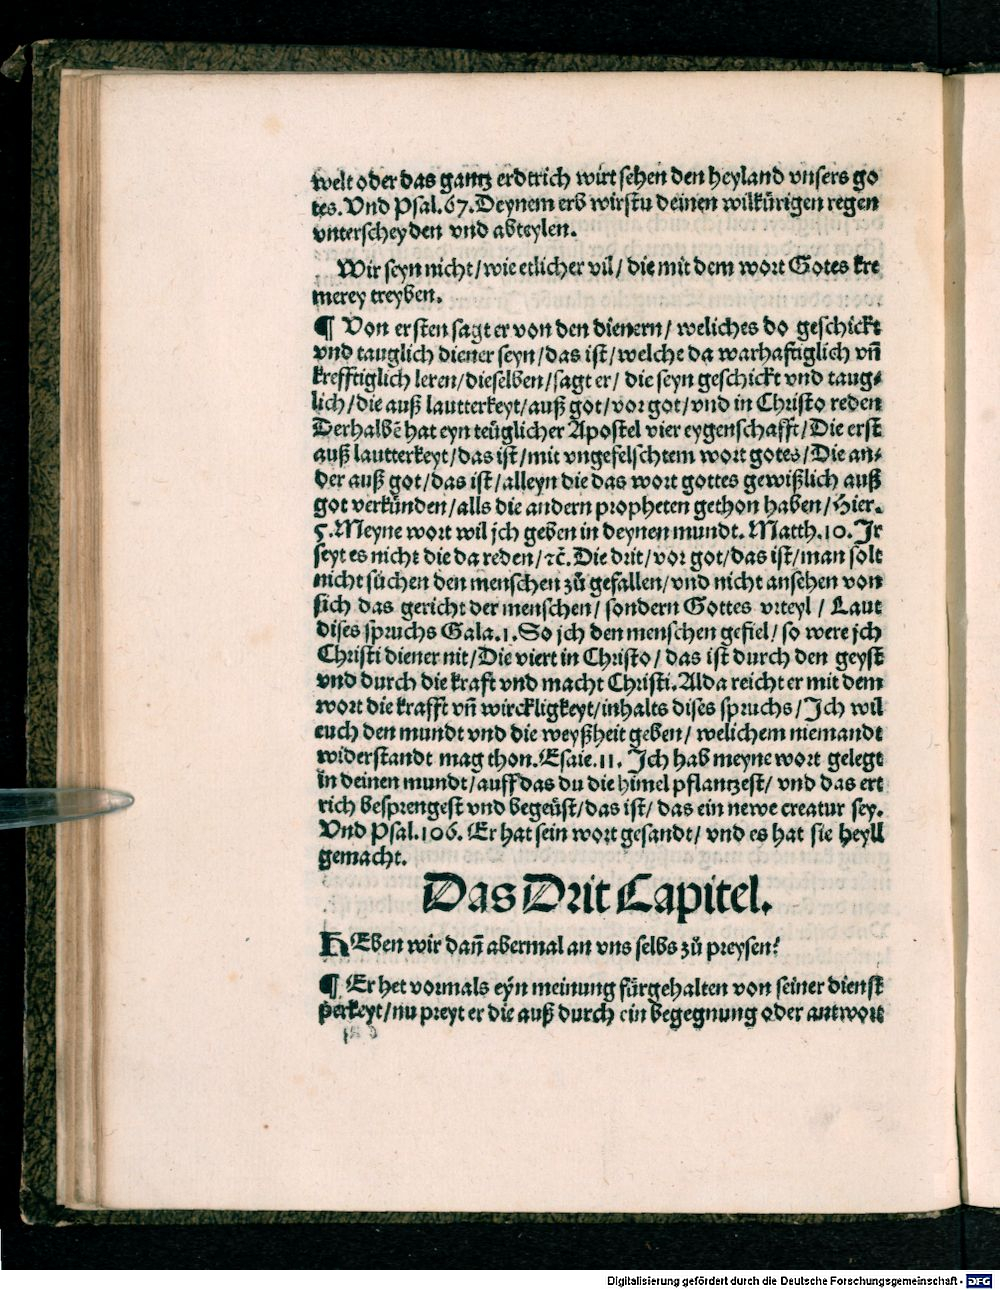 welt oder das gantz erdtrich wirt sehen den heyland vnsers go
tes. Vnd Psal. 67. Deynem erb wirstu deinen wilkürigen regen
vnterscheyden vnd abteylen.
Wir seyn nicht/ wie etlicher vil/ die mit dem wort Gotes kre
merey treyben.
¶ Von ersten sagt er von den dienern/ weliches do geschickt
vnd tauglich diener seyn/ das ist/ welche da warhafftiglich vñ
krefftiglich leren/ dieselben/ sagt er/ die seyn geschickt vnd taug⸗
lich/ die auß lautterkeyt/ auß got/ vor got/ vnd in Christo reden
Derhalbē hat eyn teüglicher Apostel vier eygenschafft/ Die erst
auß lautterkeyt/ das ist/ mit vngefelschtem wort gotes/ Die an⸗
der auß got/ das ist/ alleyn die das wort gottes gewißlich auß
got verkünden/ alls die andern propheten gethon haben/ Hier.
5. Meyne wort wil jch geben in deynen mundt. Matth. 10. Jr
seyt es nicht die da reden/ ꝛc̄. Die drit/ vor got/ das ist/ man solt
nicht süchen den menschen zů gefallen/ vnd nicht ansehen von
sich das gericht der menschen/ sondern Gottes vrteyl/ Laut
dises spruchs Gala. 1. So jch den menschen gefiel/ so were jch
Christi diener nit/ Die viert in Christo/ das ist durch den geyst
vnd durch die kraft vnd macht Christi. Alda reicht er mit dem
wort die krafft vñ wirckligkeyt/ inhalts dises spruchs/ Jch wil
euch den mundt vnd die weyßheit geben/ welichem niemandt
widerstandt mag thon. Esaie. 11. Jch hab meyne wort gelegt
in deinen mundt/ auff das du die himel pflantzest/ vnd das ert
rich besprengest vnd begeüst/ das ist/ das ein newe creatur sey.
Vnd Psal. 106. Er hat sein wort gesandt/ vnd es hat sie heyll
gemacht.
Das Drit Capitel.
HEben wir dañ abermal an vns selbs zů preysen?
¶ Er het vormals eyn meinung fürgehalten von seiner dienst
perkeyt/ nu preyt er die auß durch ein begegnung oder antwort
Digitalisierung gefördert durch die Deutsche Forschungsgemeinschaft - DFG